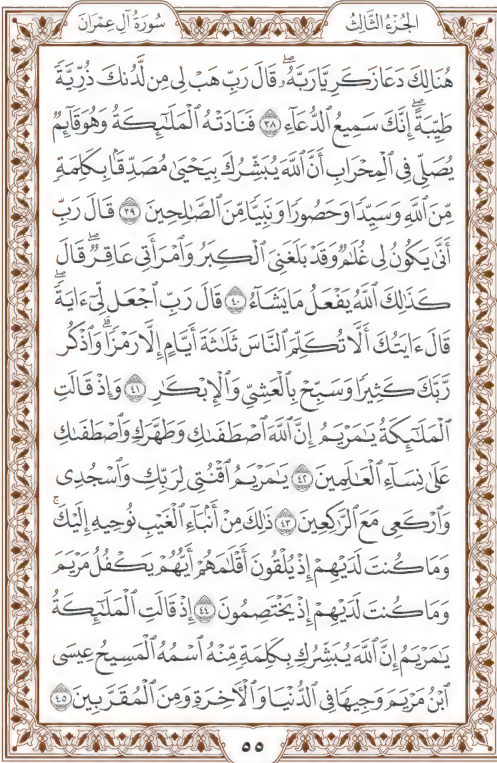 الجُزْءُ الثَّالِثُ سُورَةُ آلِ عِمْرَانَ
هُنَالِكَ دَعَا زَكَرِيَّا رَبَّهُۥۖ قَالَ رَبِّ هَبْ لِى مِن لَّدُنكَ ذُرِّيَّةً
طَيِّبَةًۖ إِنَّكَ سَمِيعُ ٱلدُّعَآءِ ٣٨ فَنَادَتْهُ ٱلْمَلَٰٓئِكَةُ وَهُوَ قَآئِمٌ
يُصَلِّى فِى ٱلْمِحْرَابِ أَنَّ ٱللَّهَ يُبَشِّرُكَ بِيَحْيَىٰ مُصَدِّقًۢا بِكَلِمَةٍ
مِّنَ ٱللَّهِ وَسَيِّدًا وَحَصُورًا وَنَبِيًّا مِّنَ ٱلصَّٰلِحِينَ ٣٩ قَالَ رَبِّ
أَنَّىٰ يَكُونُ لِى غُلَٰمٌ وَقَدْ بَلَغَنِىَ ٱلْكِبَرُ وَٱمْرَأَتِى عَاقِرٌۖ قَالَ
كَذَٰلِكَ ٱللَّهُ يَفْعَلُ مَا يَشَآءُ ٤٠ قَالَ رَبِّ ٱجْعَل لِّىٓ ءَايَةًۖ
قَالَ ءَايَتُكَ أَلَّا تُكَلِّمَ ٱلنَّاسَ ثَلَٰثَةَ أَيَّامٍ إِلَّا رَمْزًاۗ وَٱذْكُر
رَّبَّكَ كَثِيرًا وَسَبِّحْ بِٱلْعَشِىِّ وَٱلْإِبْكَٰرِ ٤١ وَإِذْ قَالَتِ
ٱلْمَلَٰٓئِكَةُ يَٰمَرْيَمُ إِنَّ ٱللَّهَ ٱصْطَفَىٰكِ وَطَهَّرَكِ وَٱصْطَفَىٰكِ
عَلَىٰ نِسَآءِ ٱلْعَٰلَمِينَ ٤٢ يَٰمَرْيَمُ ٱقْنُتِى لِرَبِّكِ وَٱسْجُدِى
وَٱرْكَعِى مَعَ ٱلرَّٰكِعِينَ ٤٣ ذَٰلِكَ مِنْ أَنۢبَآءِ ٱلْغَيْبِ نُوحِيهِ إِلَيْكَۚ
وَمَا كُنتَ لَدَيْهِمْ إِذْ يُلْقُونَ أَقْلَٰمَهُمْ أَيُّهُمْ يَكْفُلُ مَرْيَمَ
وَمَا كُنتَ لَدَيْهِمْ إِذْ يَخْتَصِمُونَ ٤٤ إِذْ قَالَتِ ٱلْمَلَٰٓئِكَةُ
يَٰمَرْيَمُ إِنَّ ٱللَّهَ يُبَشِّرُكِ بِكَلِمَةٍ مِّنْهُ ٱسْمُهُ ٱلْمَسِيحُ عِيسَى
ٱبْنُ مَرْيَمَ وَجِيهًا فِى ٱلدُّنْيَا وَٱلْءَاخِرَةِ وَمِنَ ٱلْمُقَرَّبِينَ ٤٥
٥٥